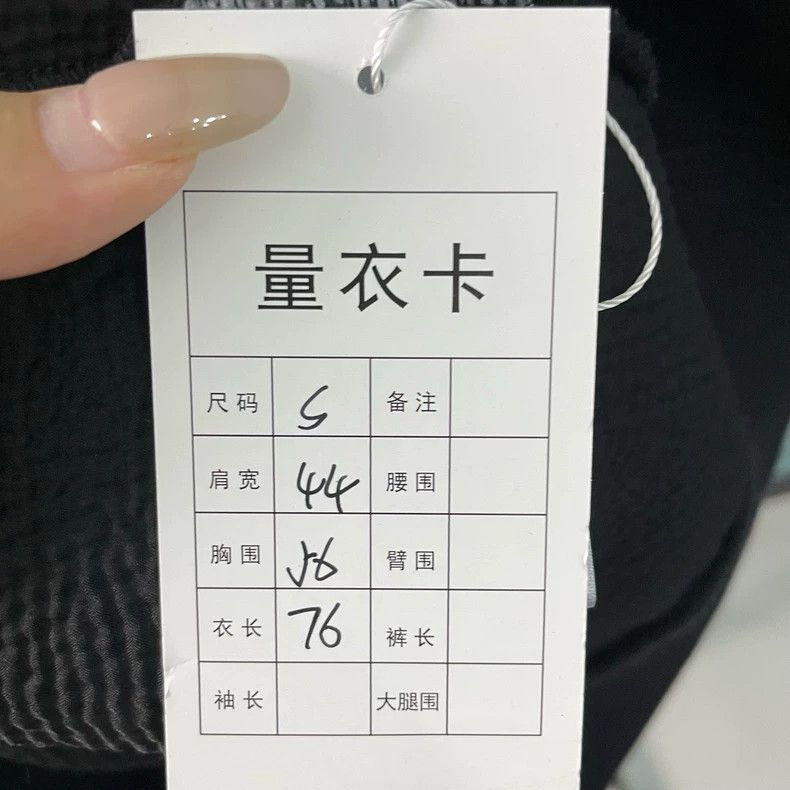 量衣卡
尺码 S 备注
肩宽 44 腰围
胸围 56 臂围
衣长 76 裤长
袖长 大腿围